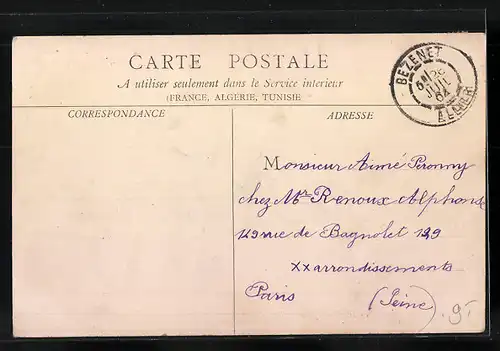 CARTE POSTALE
A utiliser seulement dans le Service intérieur
(FRANCE, ALGERIE, TUNISIE
CORRESPONDANCE
ADRESSE
BEZENET
ALLIER
Monsieur Aimé Peronny
chez Mr Renoux Alphonse
149 rue de Bagnolet 149
XX arrondissements
Paris (Seine)
9.-